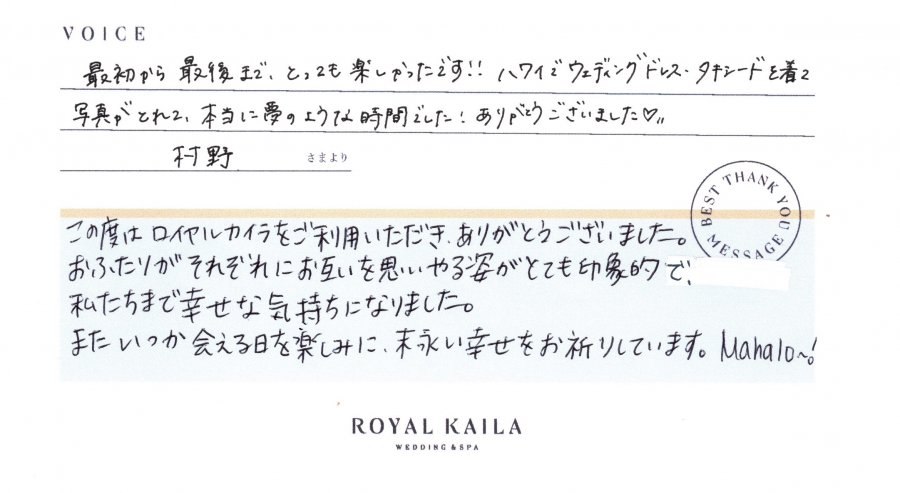 VOICE
最初から最後まで、とっても楽しかったです!! ハワイでウェディングドレス・タキシードを着て
写真がとれて、本当に夢のような時間でした! ありがとうございました♡〃
村野 さまより
BEST THANK YOU MESSAGE
この度はロイヤルカイラをご利用いただき、ありがとうございました。
おふたりがそれぞれにお互いを思いやる姿がとても印象的で、
私たちまで幸せな気持ちになりました。
またいつか会える日を楽しみに、末永い幸せをお祈りしています。Mahalo~!
ROYAL KAILA
WEDDING & SPA